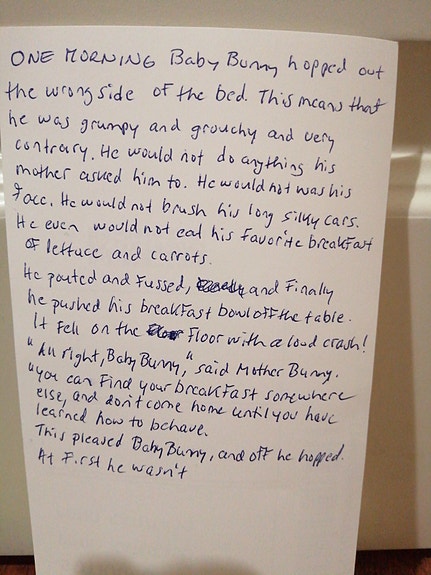 ONE MORNING Baby Bunny hopped out
the wrong side of the bed. This means that
he was grumpy and grouchy and very
contrary. He would not do anything his
mother asked him to. He would not was his
face. He would not brush his long silky ears.
He even would not eat his favorite breakfast
of lettuce and carrots.
He pouted and fussed, and Finally
he pushed his breakfast bowl off the table.
It fell on the floor with a loud crash!
"All right, Baby Bunny," said Mother Bunny.
"you can find your breakfast somewhere
else, and don't come home until you have
learned how to behave.
This pleased Baby Bunny, and off he hopped.
At first he wasn't